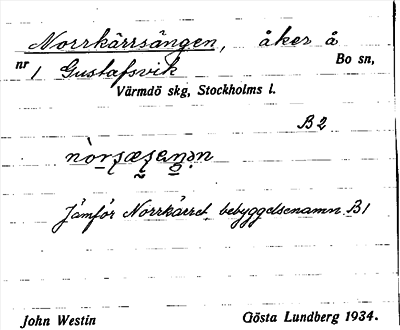 Norrkärrsängen, åker å
nr 1 Gustafsvik Bo sn,
Värmdö skg, Stockholms l.
B2
Jämför Norrkärret, bebyggelsenamn B1
John Westin Gösta Lundberg 1934.